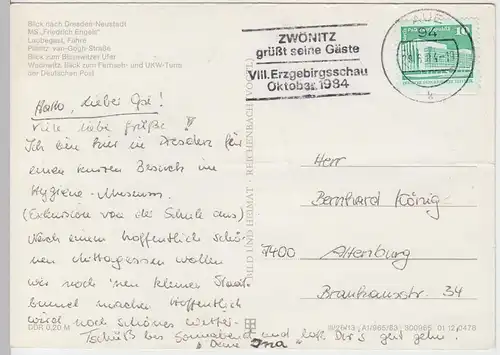 Blick nach Dresden-Neustadt
MS „Friedrich Engels“
Laubegast, Fähre
Pillnitz, van-Gogh-Straße
Blick zum Blasewitzer Ufer
Wachwitz, Blick zum Fernseh- und UKW-Turm
der Deutschen Post
ZWÖNITZ
grüßt seine Gäste
VIII. Erzgebirgsschau
Oktober 1984
AUE
10
Hallo, lieber Opi!
Viele liebe Grüße!!
Ich bin hier in Dresden für
einen kurzen Besuch im
Hygiene-Museum.
(Exkursion von der Schule aus)
Nach einem hoffentlich schö-
nen Mittagessen wollen
wir noch 'nen kleinen Stadt-
bummel machen. Hoffentlich
wird noch schönes Wetter.
Tschüß bis Sonnabend und laß Dir's gut gehn.
Deine Ina
BILD UND HEIMAT REICHENBACH (VOGTL)
Herr
Bernhard König
7400 Altenburg
Brauhausstr. 34
DDR 0,20 M